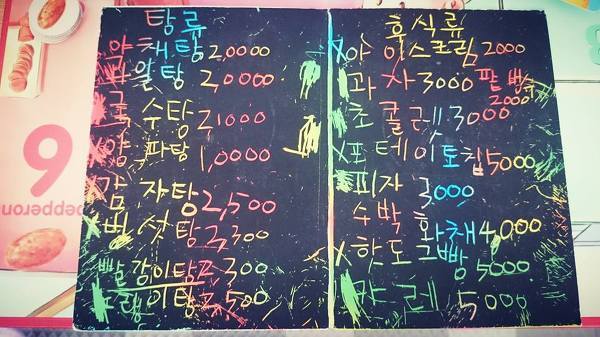 탕류
야채탕 2,0000
과일탕 2,0000
국수탕 2,1000
양파탕 1,0000
감자탕 2,500
버섯탕 2,300
빨강이탕 2,300
후식류
아이스크림 2000
과자 3000 팥빙수 2000
초콜렛 3000
포테이토칩 5000
피자 3,000
수박화채 4,000
핫도그빵 5000
카레 5000
6
pepperon